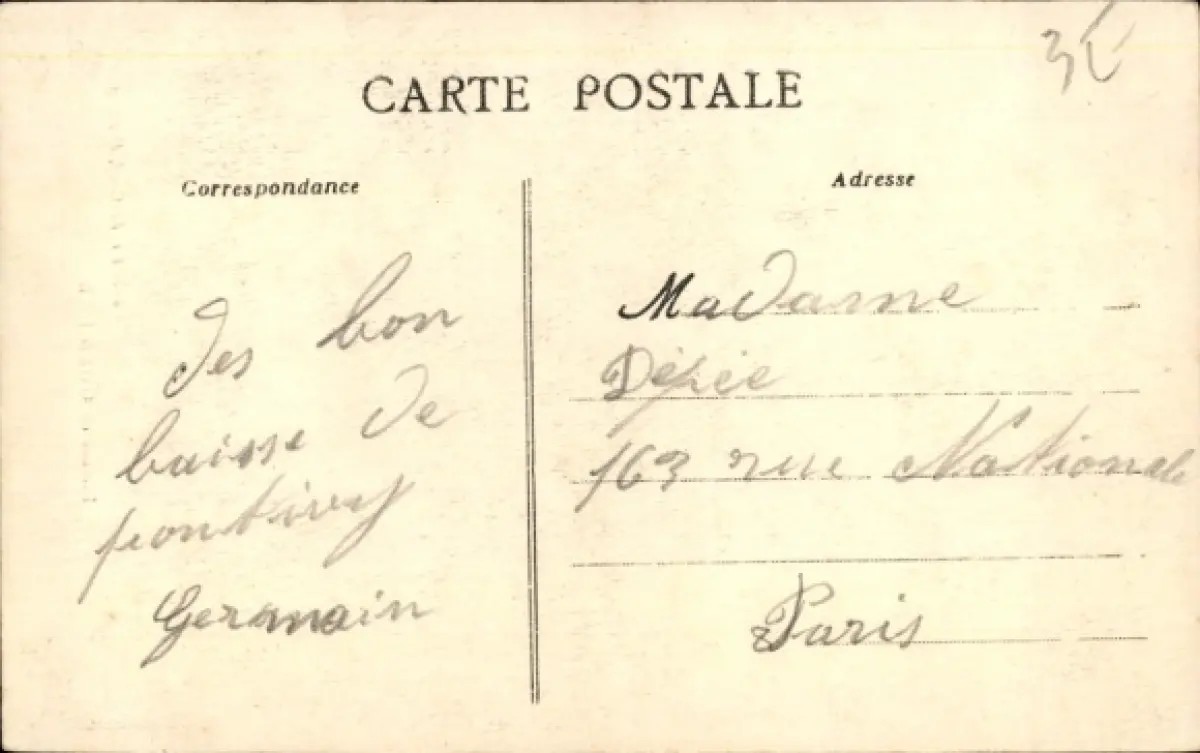 3£
CARTE POSTALE
Correspondance
des bon
baisse de
pontivy
Germain
Adresse
Madame
Dépée
163 rue Nationale
Paris